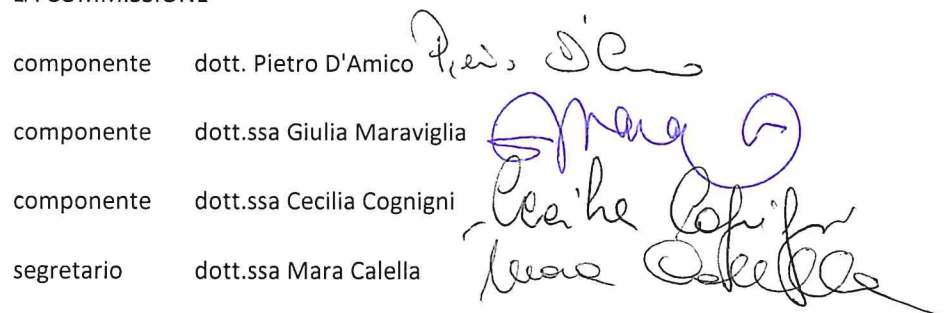 LA COMMISSIONE
componente dott. Pietro D'Amico
componente dott.ssa Giulia Maraviglia
componente dott.ssa Cecilia Cognigni
segretario dott.ssa Mara Calella